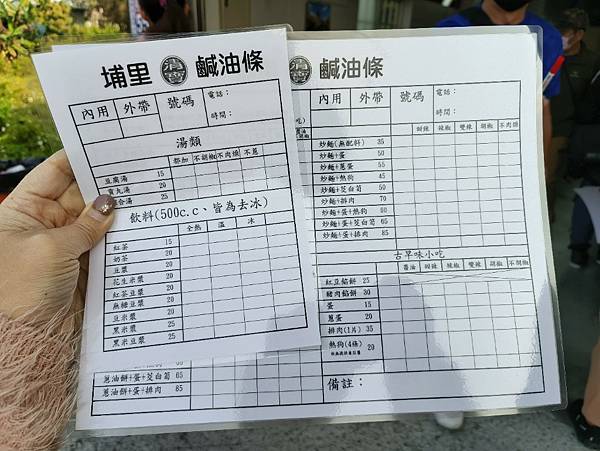 埔里 鹹油條
內用 外帶 號碼 電話：
時間：
湯類
都加 不胡椒 不肉燥 不蔥
豆腐湯 15
貢丸湯 20
綜合湯 25
飲料(500c.c、皆為去冰)
全熱 溫 冰
紅茶 15
奶茶 20
豆漿 20
花生米漿 20
紅茶豆漿 20
無糖豆漿 20
豆米漿 20
黑米漿 25
黑米豆漿 25
鹹油條
內用 外帶 號碼 電話：
時間：
甜辣 辣椒 雙辣 胡椒 不肉燥
炒麵(無配料) 35
炒麵+蛋 50
炒麵+蔥蛋 55
炒麵+熱狗 45
炒麵+茭白筍 50
炒麵+排肉 70
炒麵+蛋+熱狗 60
炒麵+蛋+茭白筍 65
炒麵+蛋+排肉 85
古早味小吃
醬油 甜辣 辣椒 雙辣 胡椒 不胡椒
紅豆餡餅 25
豬肉餡餅 30
蛋 15
蔥蛋 20
排肉(1片) 35
熱狗(4條) 20
備註：
蔥油餅+蛋+茭白筍 65
蔥油餅+蛋+排肉 85